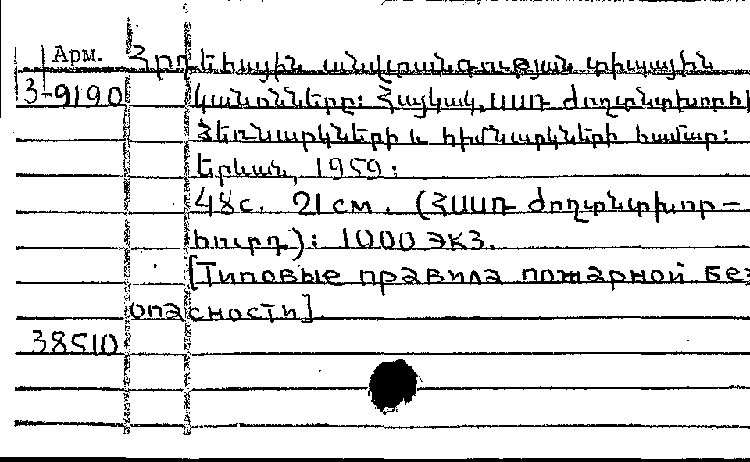 Арм. Հրդեհային անվտանգության տիպային
3-9190 կանոնները: Հայկակ. ՍՍՌ ժողտնտխորհ
ձեռնարկների և հիմնարկների համար:
Երևան, 1959:
48с. 21см. (ՀՍՍՌ ժողտնտխոր-
հուրդ): 1000 экз.
[Типовые правила пожарной без
опасности]
38510